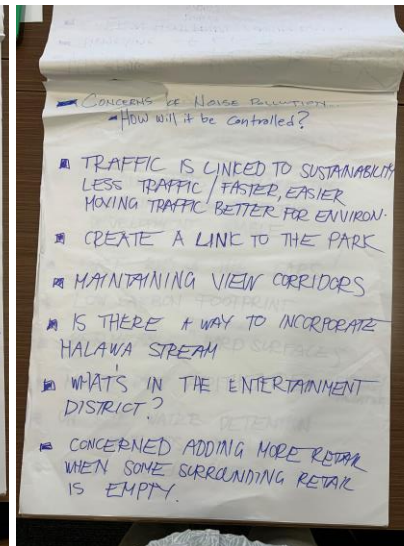 - CONCERNS OF NOISE POLLUTION...
- How will it be controlled?
▪ TRAFFIC IS LINKED TO SUSTAINABILITY
LESS TRAFFIC / FASTER, EASIER
MOVING TRAFFIC BETTER FOR ENVIRON.
▪ CREATE A LINK TO THE PARK
▪ MAINTAINING VIEW CORRIDORS
▪ IS THERE A WAY TO INCORPORATE
HALAWA STREAM
▪ WHAT'S IN THE ENTERTAINMENT
DISTRICT?
▪ CONCERNED ADDING MORE RETAIL
WHEN SOME SURROUNDING RETAIL
IS EMPTY.